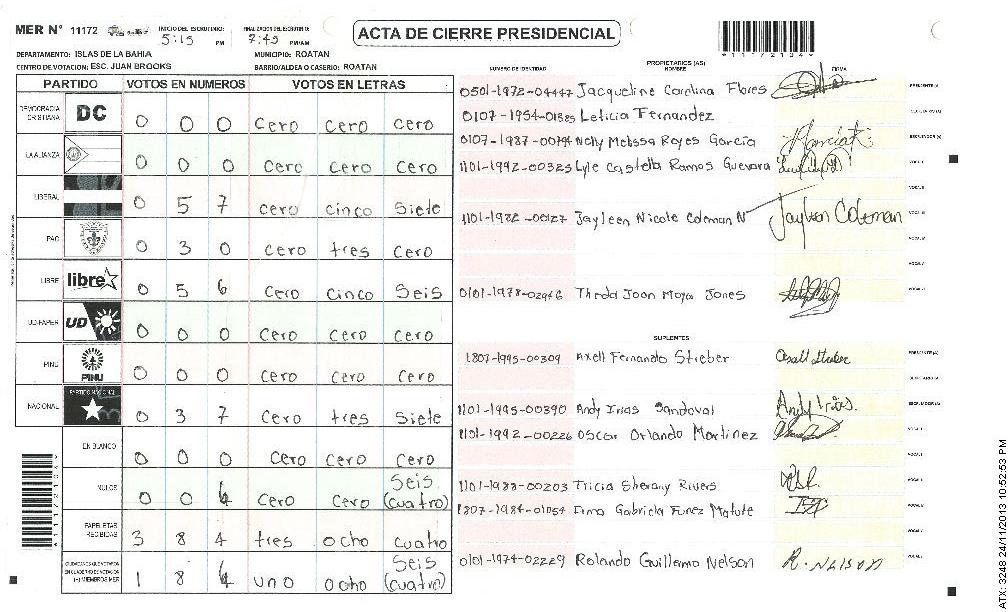 MER N° 11172 INICIO DEL ESCRUTINIO: 5:15 PM FINALIZACION DEL ESCRUTINIO: 7:45 PM/AM ACTA DE CIERRE PRESIDENCIAL
DEPARTAMENTO: ISLAS DE LA BAHIA MUNICIPIO: ROATAN
CENTRO DE VOTACION: ESC. JUAN BROOKS BARRIO/ALDEA O CASERIO: ROATAN
PARTIDO VOTOS EN NUMEROS VOTOS EN LETRAS
DEMOCRACIA CRISTIANA DC 0 0 0 cero cero cero
LA ALIANZA 0 0 0 cero cero cero
LIBERAL 0 5 7 cero cinco Siete
PAC 0 3 0 cero tres cero
LIBRE libre 0 5 6 cero cinco Seis
UD-FAPER UD 0 0 0 cero cero cero
PINU PINU 0 0 0 cero cero cero
NACIONAL PARTIDO NACIONAL 0 3 7 cero tres Siete
EN BLANCO 0 0 0 cero cero cero
NULOS 0 0 4 cero cero Seis (cuatro)
PAPELETAS RECIBIDAS 3 8 4 tres ocho cuatro
1 8 4 uno ocho Seis (cuatro)
PROPIETARIOS (AS)
NUMERO DE IDENTIDAD NOMBRE FIRMA
0501-1972-04447 Jacqueline Carolina Flores PRESIDENTE (A)
0107-1954-01385 Leticia Fernandez SECRETARIO (A)
0107-1987-00794 Nelly Melissa Reyes García ESCRUTADOR (A)
1101-1992-00325 Lyle Castella Ramos Guevara VOCAL I
1101-1982-00127 Jayleen Nicole Coleman N Jayleen Coleman
0101-1978-02946 Theda Joan Moya Jones
SUPLENTES
1807-1995-00309 Axell Fernando Strieber PRESIDENTE (A)
SECRETARIO (A)
1101-1995-00390 Andy Irias Sandoval Andy Irías. ESCRUTADOR (A)
1101-1992-00226 Oscar Orlando Martinez
1101-1988-00203 Tricia Sherany Rivers
1807-1984-01054 Irma Gabriela Funez Matute
0101-1974-02229 Rolando Guillermo Nelson R. NELSON
ATX: 3248 24/11/2013 10:52:53 PM